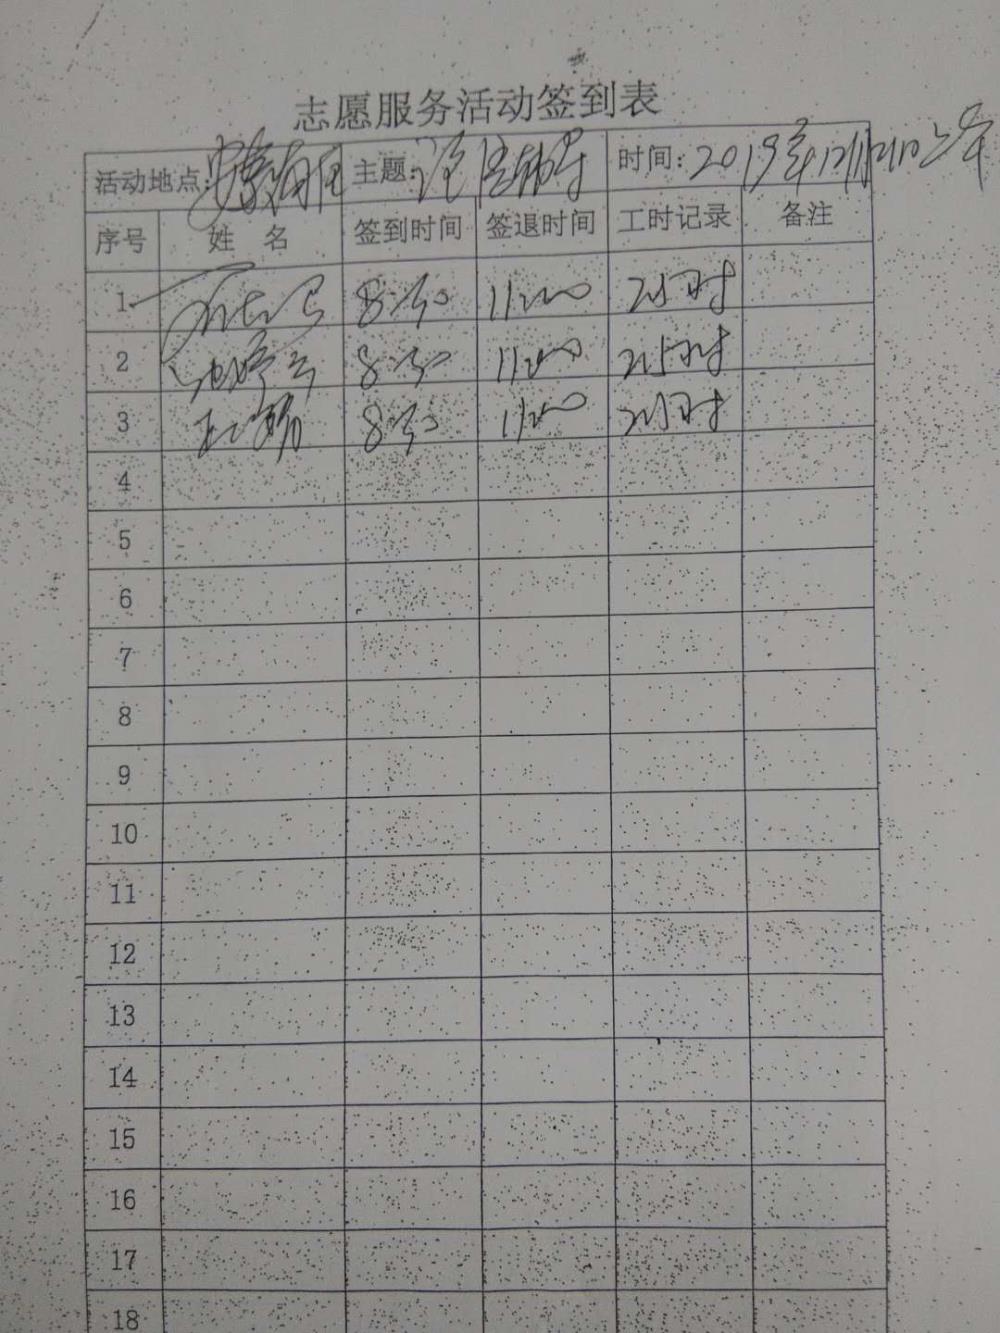 志愿服务活动签到表
活动地点: 主题: 时间:2019年12月21日上午
序号 姓名 签到时间 签退时间 工时记录 备注
1 8:30 11:00 2小时
2 8:30 11:00 2.5小时
3 8:30 11:00 2小时
4
5
6
7
8
9
10
11
12
13
14
15
16
17
18